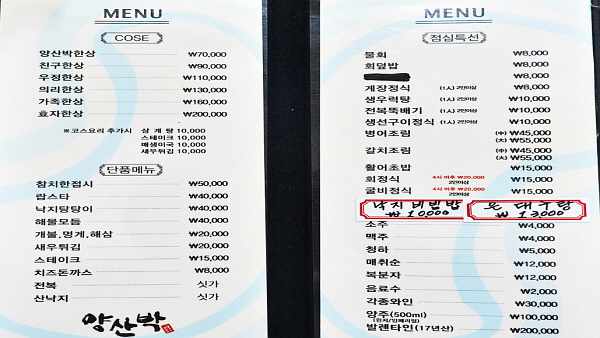 MENU
COSE
양산박한상 ₩70,000
친구한상 ₩90,000
우정한상 ₩110,000
의리한상 ₩130,000
가족한상 ₩160,000
효자한상 ₩200,000
※코스요리 추가시 삼계탕 10,000
스테이크 10,000
매생이국 10,000
새우튀김 10,000
단품메뉴
참치한접시 ₩50,000
랍스타 ₩40,000
낙지탕탕이 ₩40,000
해물모듬 ₩40,000
개불,멍게,해삼 ₩20,000
새우튀김 ₩20,000
스테이크 ₩15,000
치즈돈까스 ₩8,000
전복 싯가
산낙지 싯가
양산박
MENU
점심특선
물회 ₩8,000
회덮밥 ₩8,000
₩8,000
게장정식 (1人) 2인이상 ₩8,000
생우럭탕 (1人) 2인이상 ₩10,000
전복뚝배기 (1人) 2인이상 ₩10,000
생선구이정식 (1人) 2인이상 ₩10,000
병어조림 (中) ₩45,000
(大) ₩55,000
갈치조림 (中) ₩45,000
(大) ₩55,000
활어초밥 ₩15,000
회정식 4시 이후 ₩20,000 2인이상 ₩15,000
굴비정식 4시 이후 ₩20,000 2인이상 ₩15,000
낙지비빔밥 ₩10,000
대구탕 ₩13,000
소주 ₩4,000
맥주 ₩4,000
청하 ₩5,000
매취순 ₩12,000
복분자 ₩12,000
음료수 ₩2,000
각종와인 ₩30,000
양주(500ml) ₩100,000
(윈저/임페리얼)
발렌타인(17년산) ₩200,000